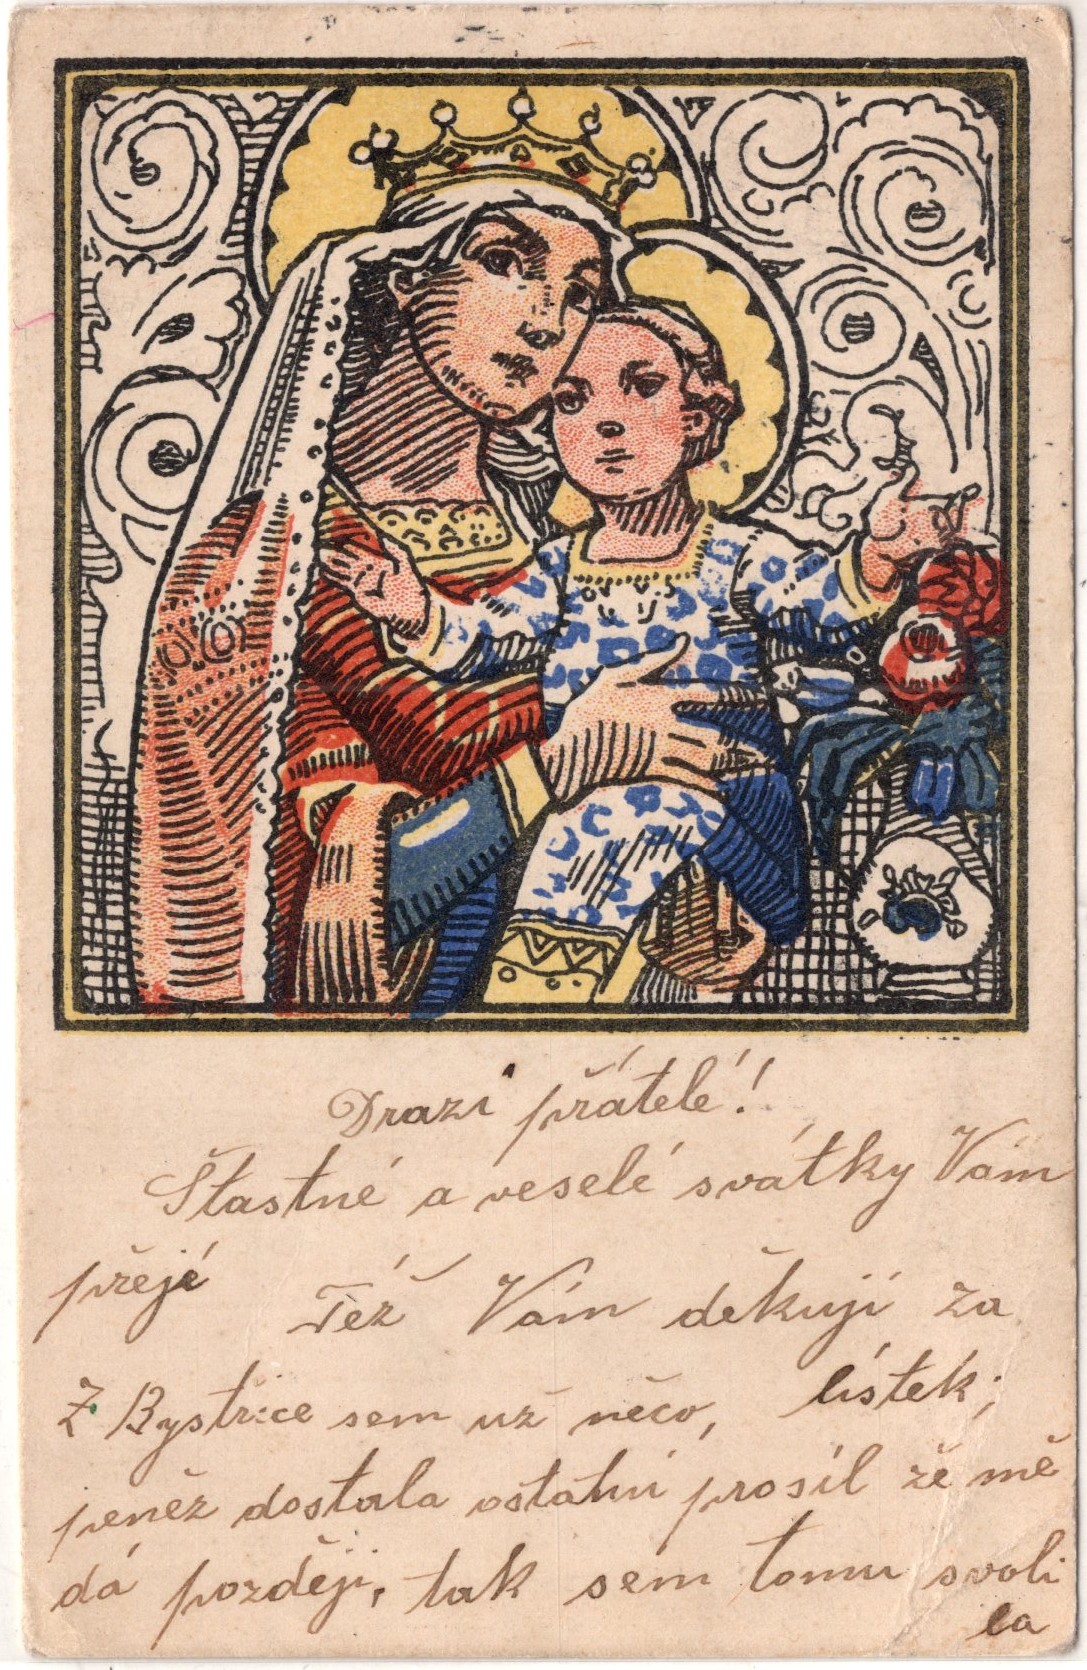 Drazí přátelé!
Štastné a veselé svátky Vám
přejé
Též Vám děkuji za
lístek;
Z Bystřice sem už něco,
peněz dostala ostatní prosíl že mě
dá později, tak sem tomu svoli
la